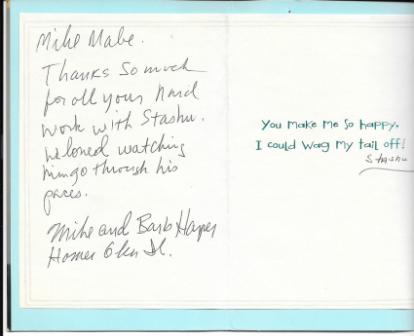 Mike Mabe.
Thanks so much
for all your hard
work with Stashu.
We loved watching
him go through his
paces.
Mike and Barb Harper
Homer Glen Il.
You make me so happy,
I could wag my tail off!
Stashu